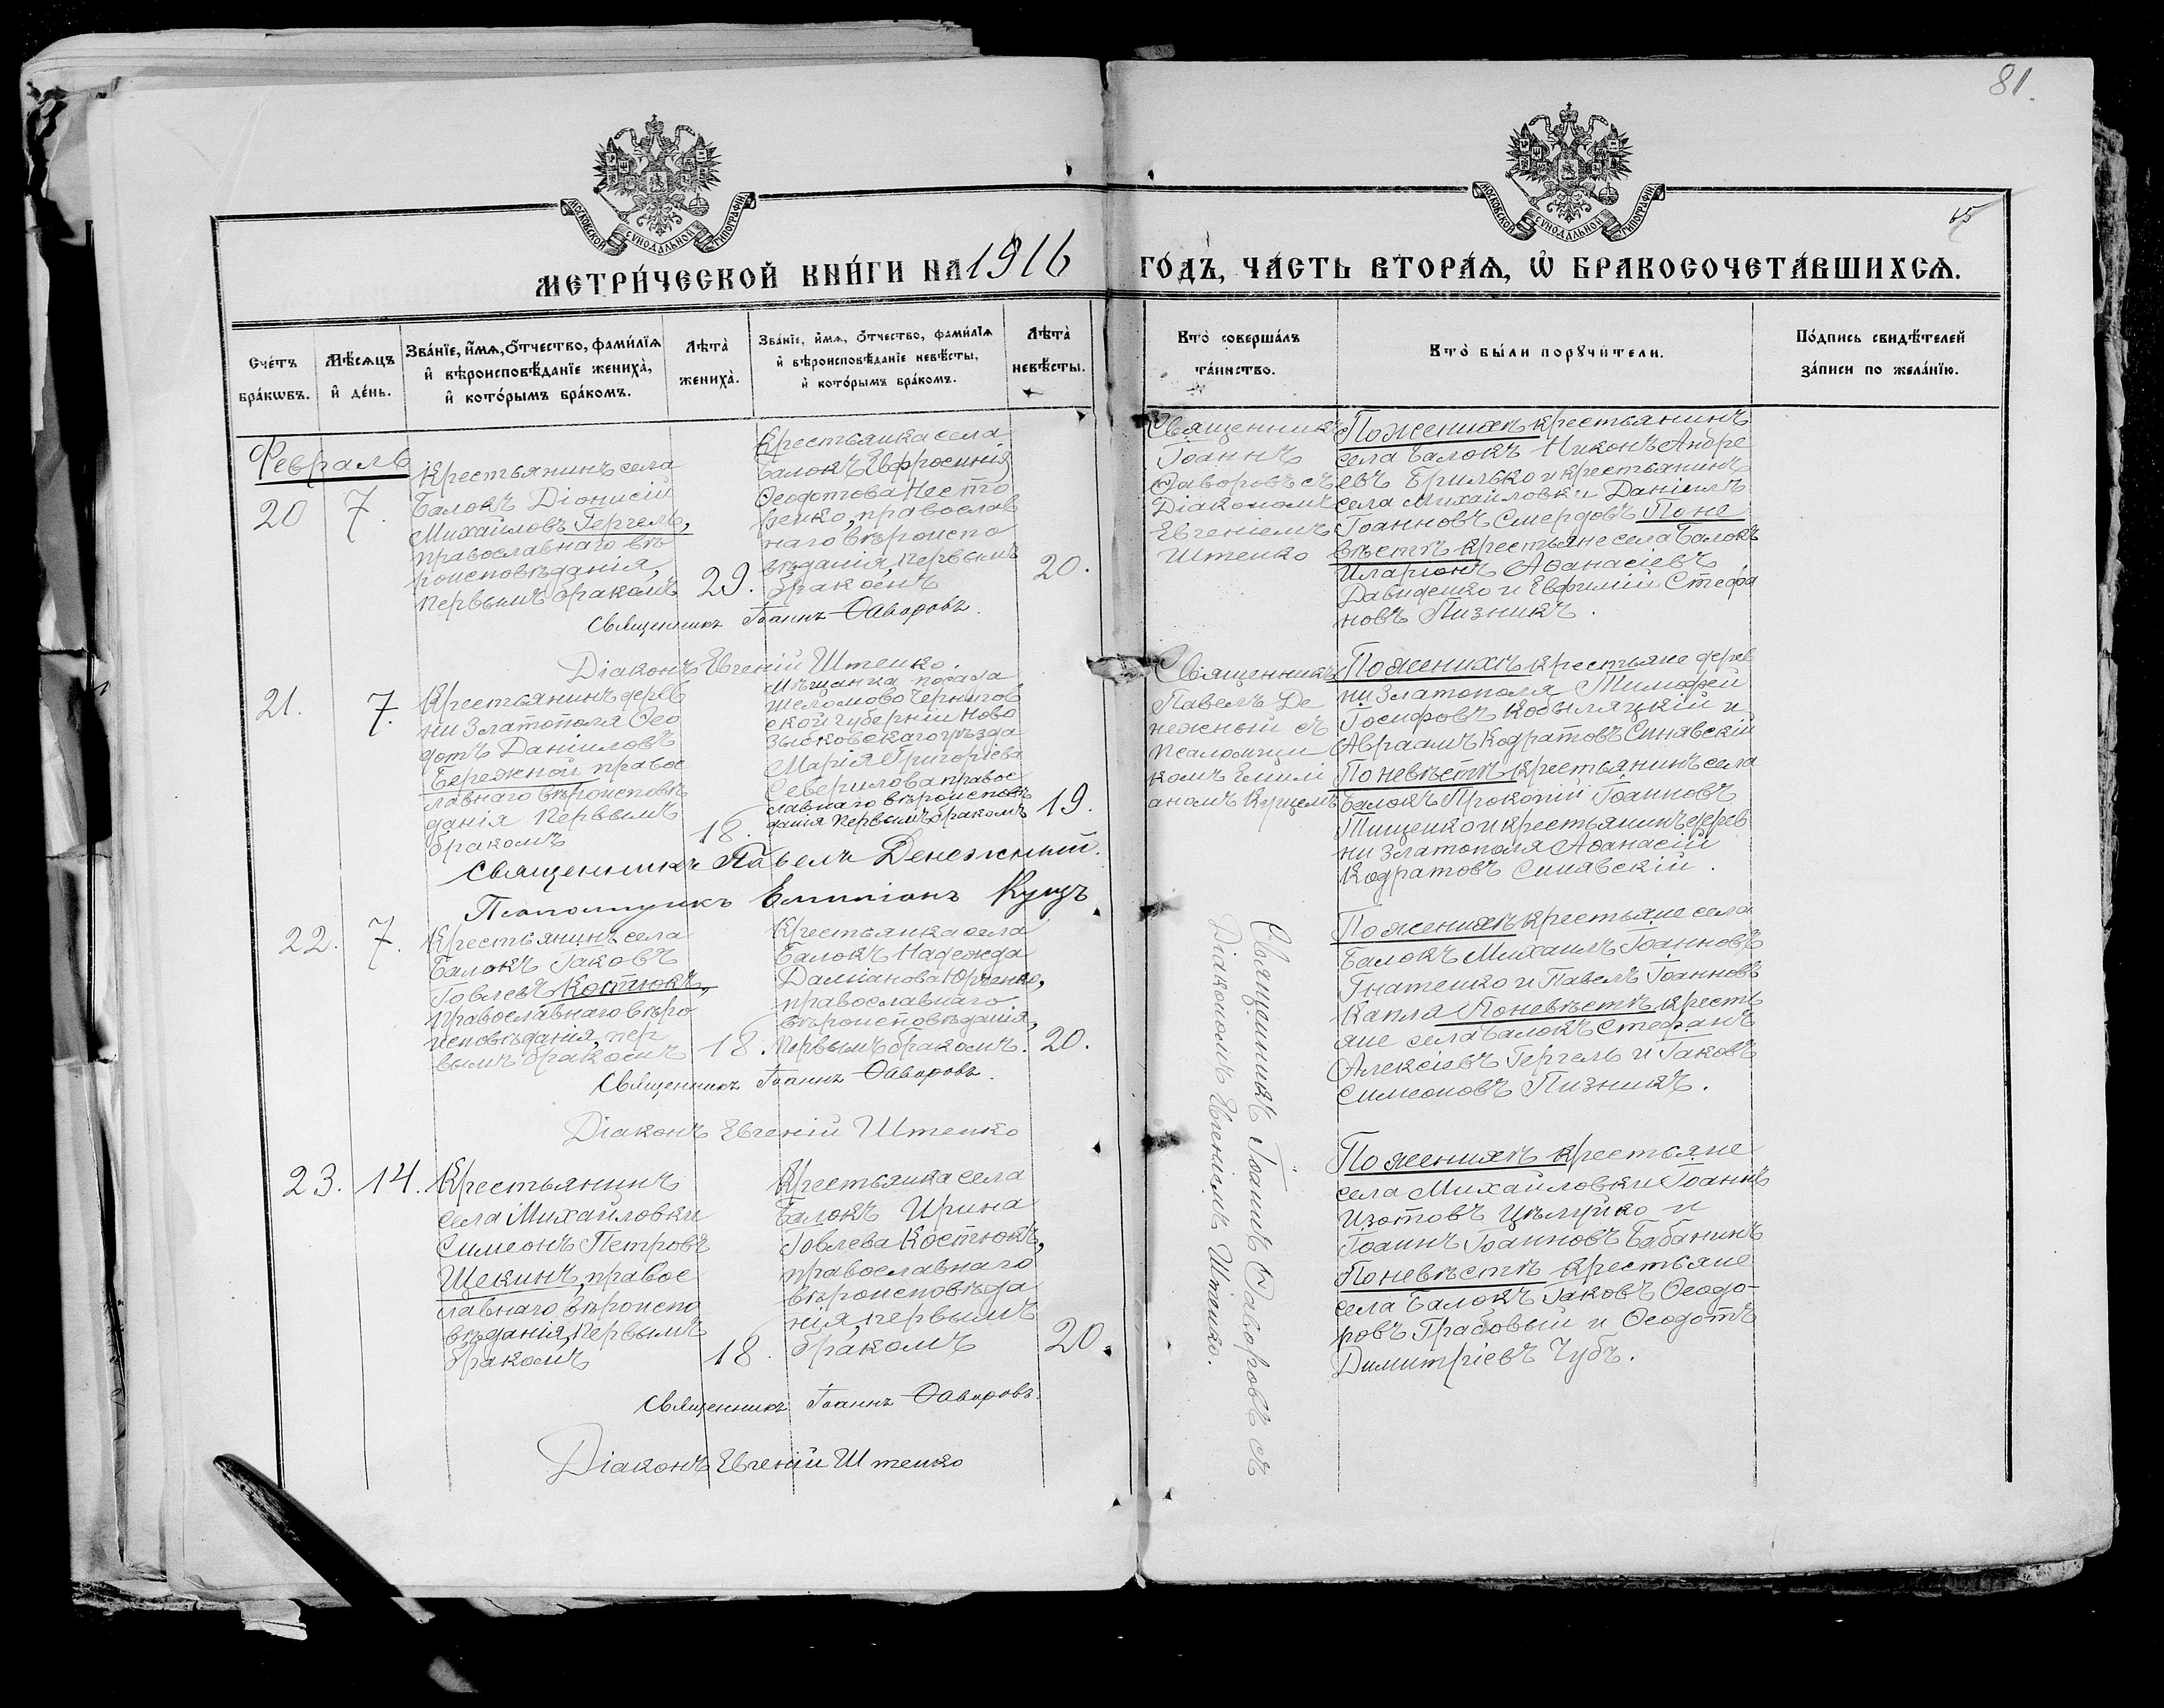 81.
МОСКОВСКОЙ СѴНОДАЛЬНОЙ ТИПОГРАФІИ
МОСКОВСКОЙ СѴНОДАЛЬНОЙ ТИПОГРАФІИ
МЕТРИ́ЧЕСКОЙ КНИ́ГИ НА 1916 ГО́ДЪ, ЧА́СТЬ ВТОРА́Ѧ, Ѡ҆ БРАКОСОЧЕТА́ВШИХСѦ.
Сче́тъ
бра́кѡвъ.
Мѣ́сѧцъ
и҆ де́нь.
Зва́нїе, и҆́мѧ, ѻ҆́тчество, фами́лїѧ
и҆ вѣроисповѣ́данїе жениха̀,
и҆ кото́рымъ бра́комъ.
Лѣта̀
жениха̀.
Зва́нїе, и҆́мѧ, ѻ҆́тчество, фами́лїѧ
и҆ вѣроисповѣ́данїе невѣ́сты,
и҆ кото́рымъ бра́комъ.
Лѣта̀
невѣ́сты.
Кто̀ соверша́лъ
та́инство.
Кто̀ бы́ли порꙋчи́тели.
По́дпись свидѣ́телей
за́писи по жела́нїю.
Февраль
20
7.
Крестьянинъ села
Балокъ Діонисій
Михайловъ Гергель,
православнаго вѣ
роисповѣданія,
первымъ бракомъ
29.
Крестьянка села
Балокъ Евфросинія
Ѳеодотова Несто
ренко, православ
наго вѣроиспо
вѣданія, первымъ
бракомъ
20.
Священникъ
Іоаннъ
Ѳаворовъ съ
Діакономъ
Евгеніемъ
Штепко
По женихѣ крестьянинъ
села Балокъ Никонъ Андре
евъ Брилько и крестьянинъ
села Михайловки Даніилъ
Іоанновъ Смердовъ По не
вѣстѣ крестьяне села Балокъ
Иларіонъ Аѳанасіевъ
Давиденко и Евфимій Стефа
новъ Пизникъ.
Священникъ Іоаннъ Ѳаворовъ.
Діаконъ Евгеній Штепко.
21.
7.
Крестьянинъ дерев
ни Златополя Ѳео
дотъ Даніиловъ
Бережной правос
лавнаго вѣроисповѣ
данія первымъ
бракомъ
18.
Мѣщанка посада
Шеломово Чернигов
ской губерніи Ново
зыбковскаго уѣзда
Марія Григоріева
Северилова правос
лавнаго вѣроисповѣ
данія первымъ бракомъ
19.
Священникъ
Павелъ Де
нежный съ
псаломщи
комъ Емилі
аномъ
По женихѣ крестьяне дерев
ни Златополя Тимофей
Іосифовъ Кобыляцкій и
Авраамъ Кодратовъ Синявскій
По невѣстѣ крестьянинъ села
Балокъ Прокопій Іоанновъ
Тищенко и крестьянинъ дерев
ни Златополя Аѳанасій
Кодратовъ Синявскій.
Священникъ Павелъ Денежный.
Псаломщикъ
22.
7.
Крестьянинъ села
Балокъ Іаковъ
Іовлевъ Костюкъ,
православнаго вѣро
исповѣданія, пер
вымъ бракомъ
18.
Крестьянка села
Балокъ Надежда
Даміанова Юрченко,
православнаго
вѣроисповѣданія,
первымъ бракомъ.
20.
Священникъ Іоаннъ Ѳаворовъ съ
Діакономъ Евгеніемъ Штепко.
По женихѣ крестьяне села
Балокъ Михаилъ Іоанновъ
Гнатенко и Павелъ Іоанновъ
Капля По невѣстѣ кресть
яне села Балокъ Стефанъ
Алексіевъ Гергель и Іаковъ
Симеоновъ Пизникъ.
Священникъ Іоаннъ Ѳаворовъ.
Діаконъ Евгеній Штепко
23.
14.
Крестьянинъ
села Михайловки
Симеонъ Петровъ
Щекинъ, правос
лавнаго вѣроиспо
вѣданія, первымъ
бракомъ
18.
Крестьянка села
Балокъ Ирина
Іовлева Костюкъ,
православнаго
вѣроисповѣда
нія, первымъ
бракомъ
20.
По женихѣ крестьяне
села Михайловки Іоаннъ
Изотовъ Цѣлуйко и
Іоаннъ Іоанновъ Бабанинъ
По невѣстѣ крестьяне
села Балокъ Іаковъ Ѳеодо-
ровъ Грабовый и Ѳеодотъ
Димитріевъ Чубъ.
Священникъ Іоаннъ Ѳаворовъ.
Діаконъ Евгеній Штепко